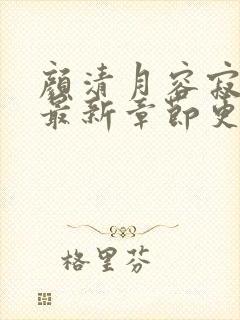 顾清月容寂
最新章节更
格里芬